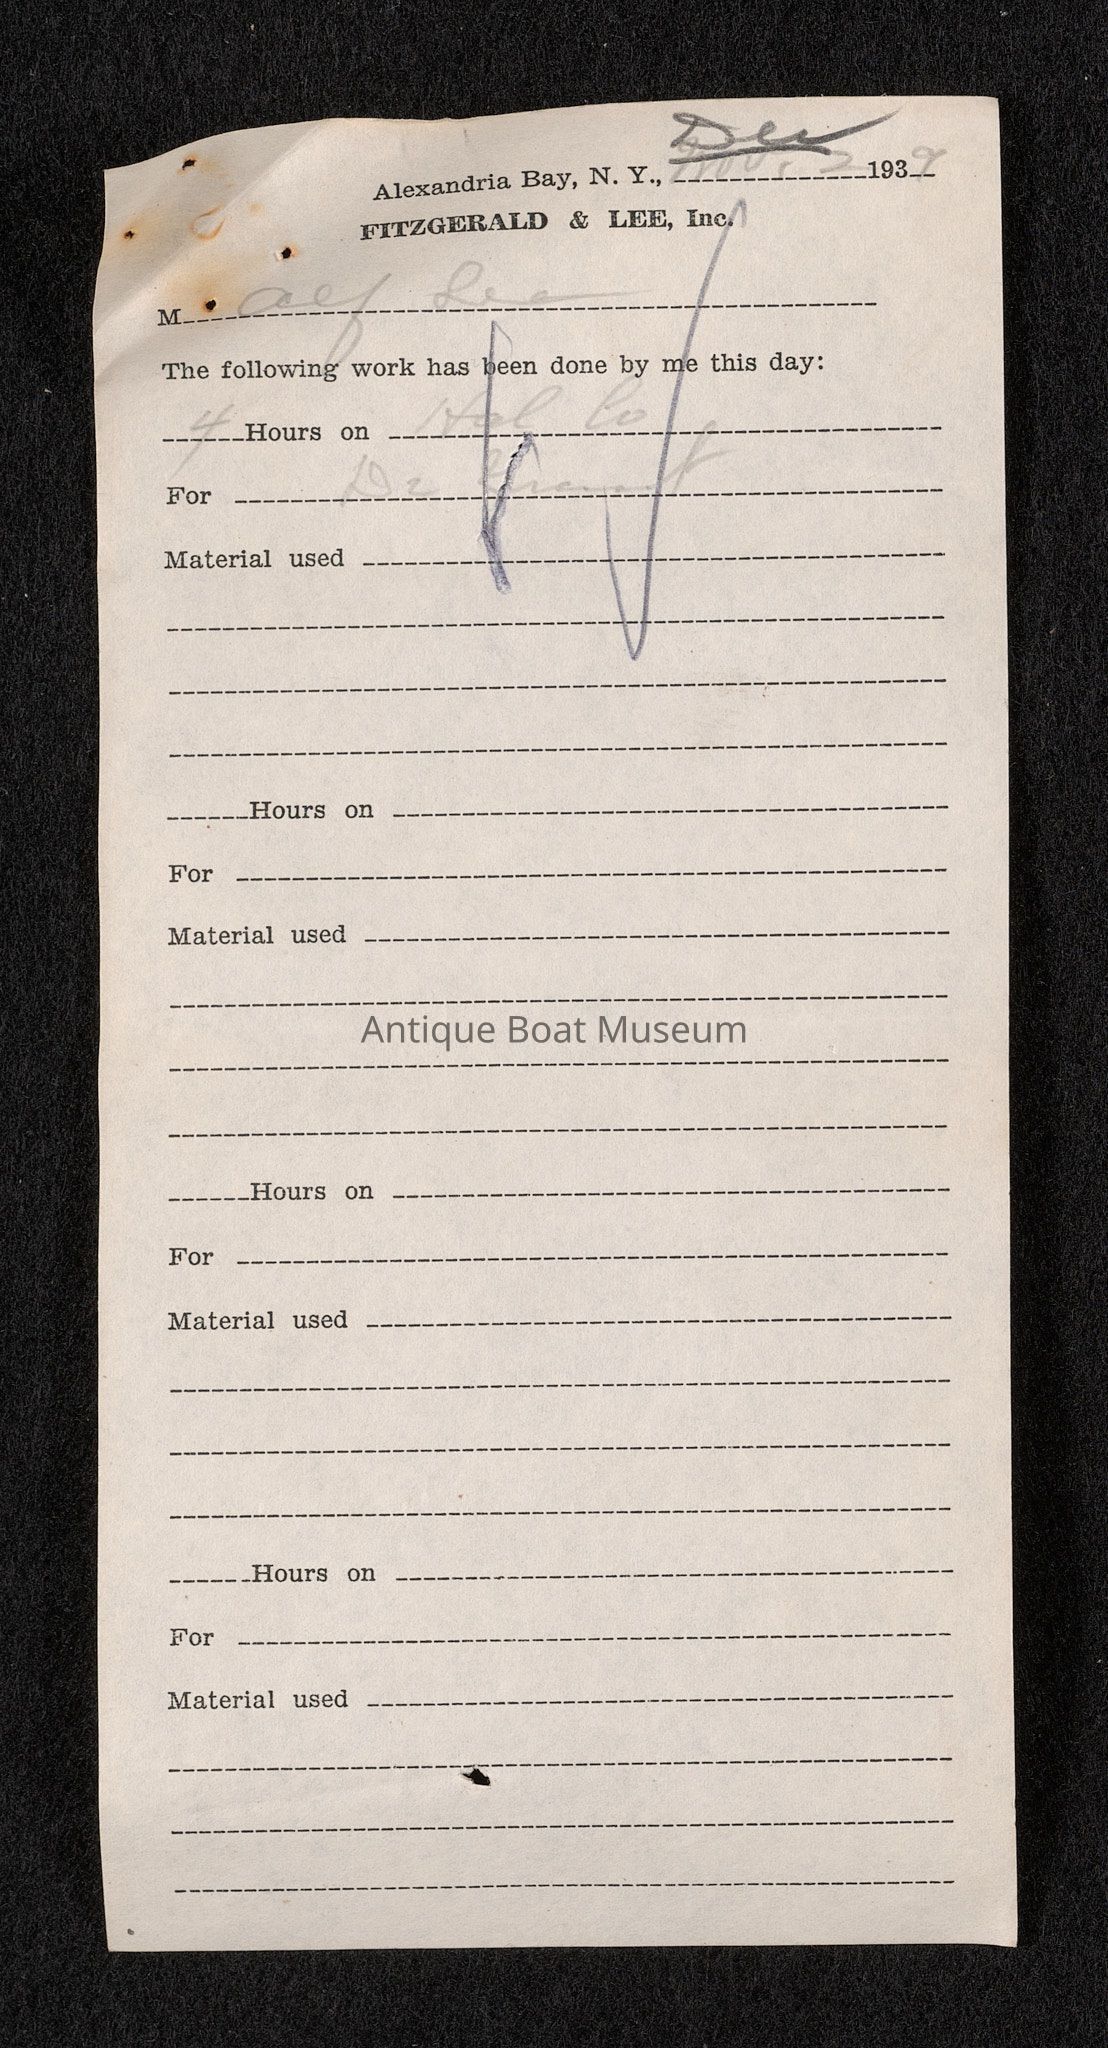 Dec
Alexandria Bay, N. Y., Nov. 2 1939
FITZGERALD & LEE, Inc.
M Alf Lee
The following work has been done by me this day:
4 Hours on
For Dr Grant
Material used
Hours on
For
Material used
Antique Boat Museum
Hours on
For
Material used
Hours on
For
Material used